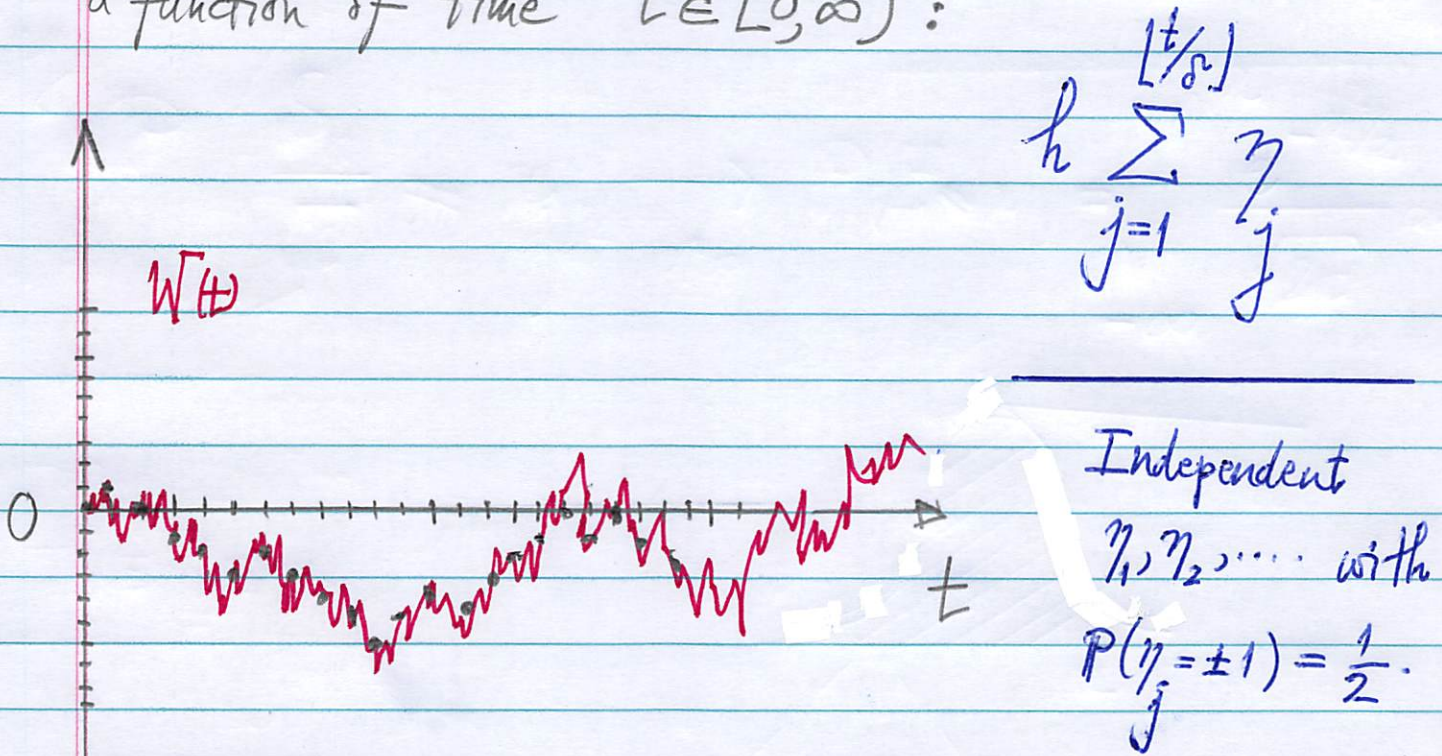 a function of Time t ∈ [0,∞):
h ∑_{j=1}^{⌊t/δ⌋} η_j
W(t)
0
t
Independent
η₁, η₂, .... with
ℙ(η_j = ±1) = 1/2.